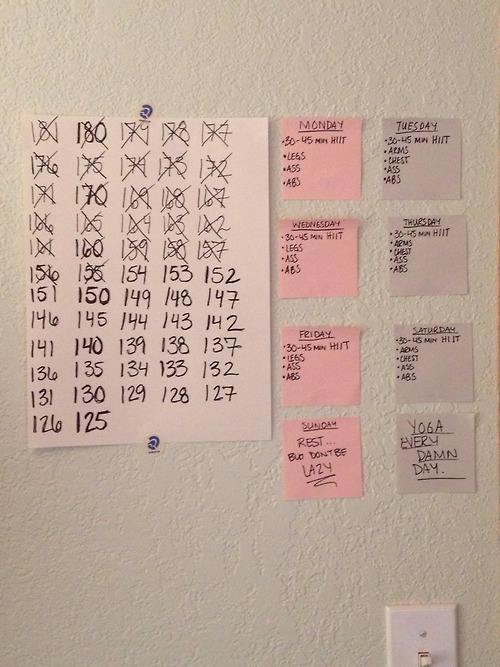 181 180 179 178 177
176 175 174 173 172
171 170 169 168 167
166 165 164 163 162
161 160 159 158 157
156 155 154 153 152
151 150 149 148 147
146 145 144 143 142
141 140 139 138 137
136 135 134 133 132
131 130 129 128 127
126 125
MONDAY
•30-45 MIN HIIT
•LEGS
•ASS
•ABS
TUESDAY
•30-45 MIN HIIT
•ARMS
•CHEST
•ASS
•ABS
WEDNESDAY
•30-45 MIN HIIT
•LEGS
•ASS
•ABS
THURSDAY
•30-45 MIN HIIT
•ARMS
•CHEST
•ASS
•ABS
FRIDAY
•30-45 MIN HIIT
•LEGS
•ASS
•ABS
SATURDAY
•30-45 MIN HIIT
•ARMS
•CHEST
•ASS
•ABS
SUNDAY
REST...
BUT DONT BE
LAZY
YOGA
EVERY
DAMN
DAY.